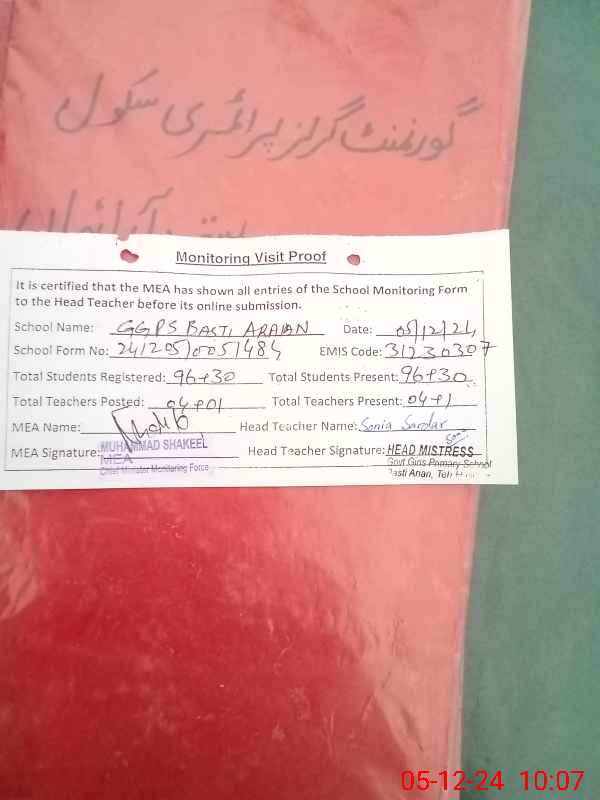 گورنمنٹ گرلز پرائمری سکول
Monitoring Visit Proof
It is certified that the MEA has shown all entries of the School Monitoring Form
to the Head Teacher before its online submission.
School Name: GGPS BASTI ARAIAN Date: 05/12/24
School Form No: 241205/0051484 EMIS Code: 31230307
Total Students Registered: 96+30 Total Students Present: 96+30
Total Teachers Posted: 04+01 Total Teachers Present: 04+1
MEA Name: Head Teacher Name: Sonia Sardar
MUHAMMAD SHAKEEL
MEA Signature: Head Teacher Signature: HEAD MISTRESS
MEA
Chief Minister Monitoring Force
Govt Girls Primary School
Basti Arian, Teh
05-12-24 10:07